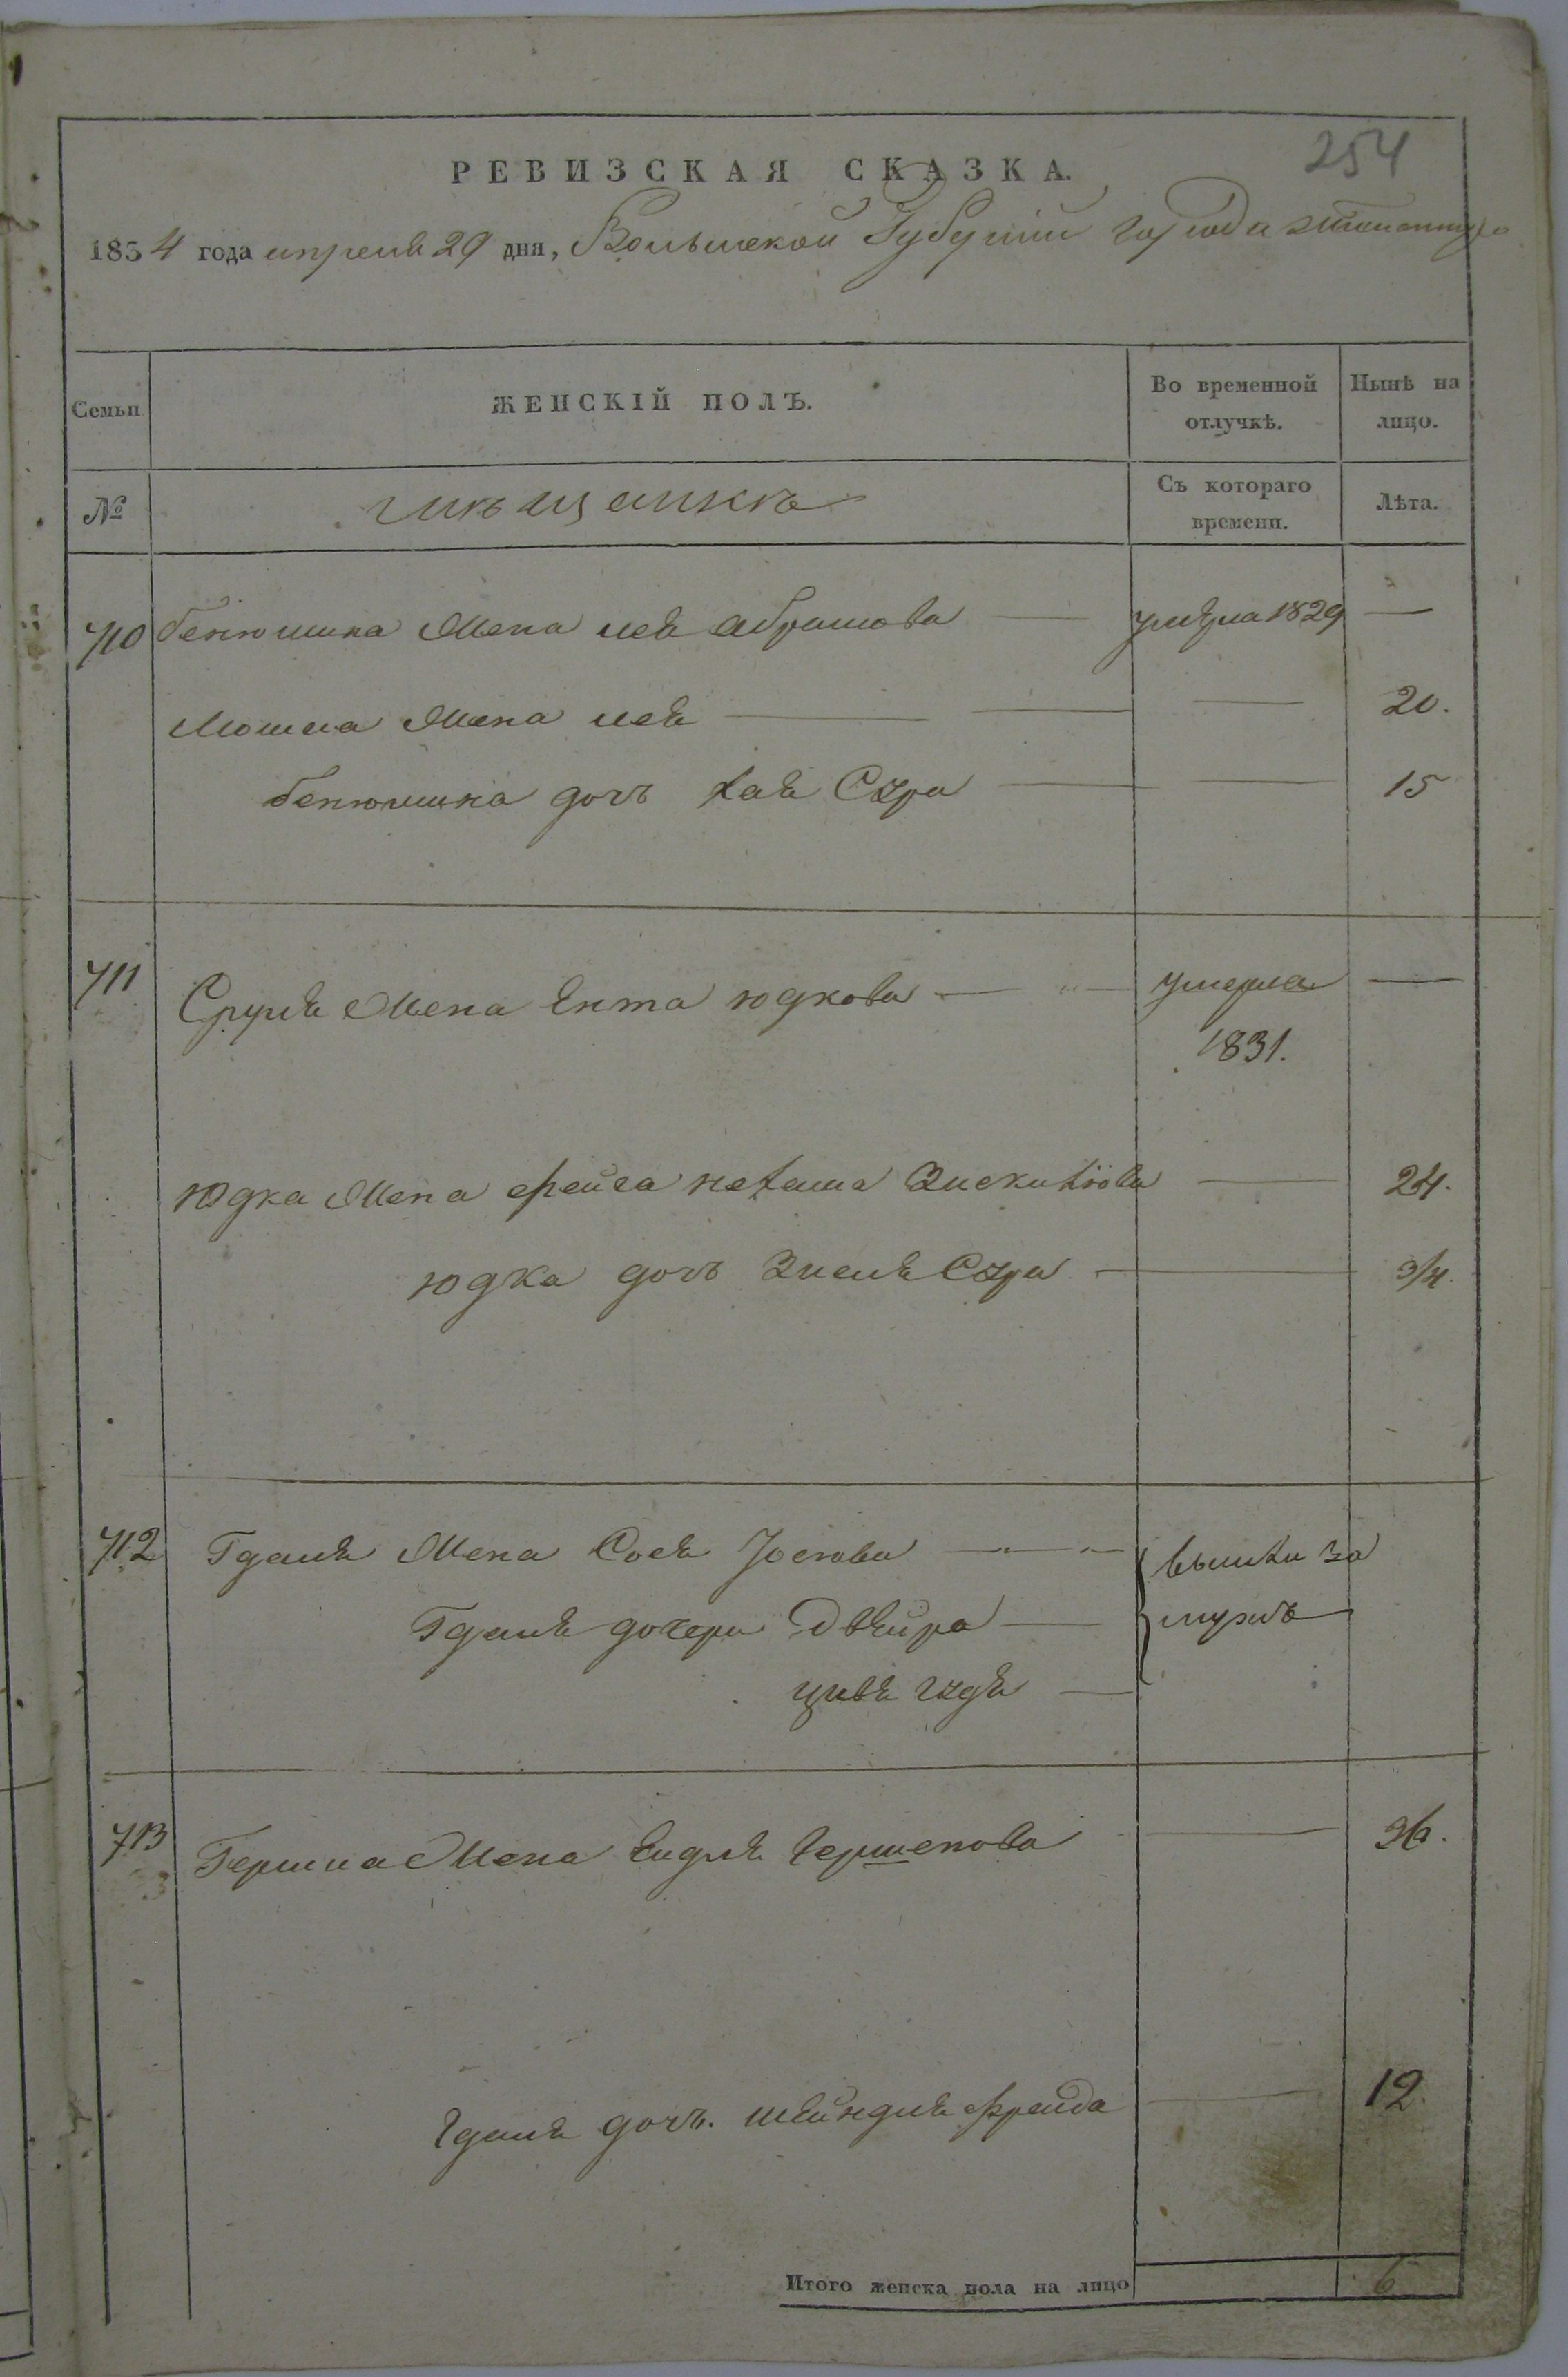 254
РЕВИЗСКАЯ СКАЗКА.
1834 года апреля 29 дня, Волынской Губернии города
Семьи
ЖЕНСКІЙ ПОЛЪ.
Во временной отлучкѣ.
Нынѣ на лицо.
№
мѣщанкѣ
Съ котораго времени.
Лѣта.
710 бенюмина Жена лея абрамова — умѣрла 1829 —
Мошка Жена лея — — 20.
бенюмина дочь хая Сура — — 15
711 Сруля Жена Ента юдкова — умерла —
1831.
Юдка Жена фейга нехама — 24.
юдка дочь Зисля Сура — 3/4.
712 Гдаля Жена Сося Joсiова — вышли за
Гдаля дочери Двейра — мужъ
цивя гудя —
713 Гершка Жена Ендля Гершкова — 36.
Гдаля дочь. шейндля фрейда — 12.
Итого женска пола на лицо 6